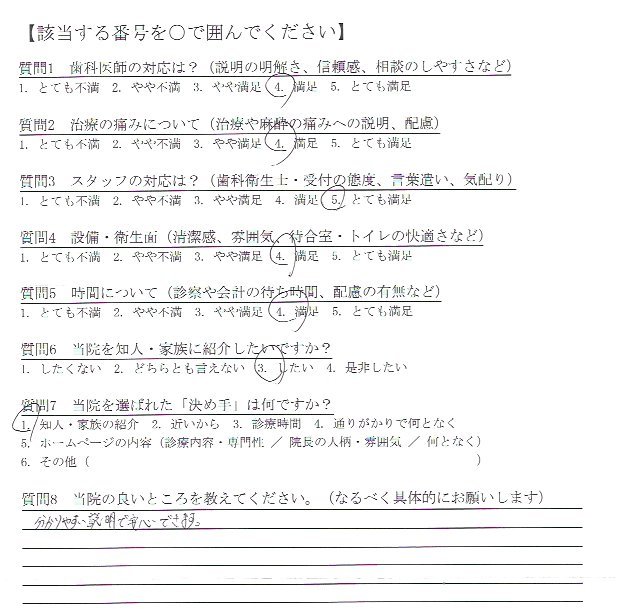 【該当する番号を○で囲んでください】
質問1 歯科医師の対応は？（説明の明解さ、信頼感、相談のしやすさなど）
1. とても不満 2. やや不満 3. やや満足 4. 満足 5. とても満足
質問2 治療の痛みについて（治療や麻酔の痛みへの説明、配慮）
1. とても不満 2. やや不満 3. やや満足 4. 満足 5. とても満足
質問3 スタッフの対応は？（歯科衛生士・受付の態度、言葉遣い、気配り）
1. とても不満 2. やや不満 3. やや満足 4. 満足 5. とても満足
質問4 設備・衛生面（清潔感、雰囲気、待合室・トイレの快適さなど）
1. とても不満 2. やや不満 3. やや満足 4. 満足 5. とても満足
質問5 時間について（診察や会計の待ち時間、配慮の有無など）
1. とても不満 2. やや不満 3. やや満足 4. 満足 5. とても満足
質問6 当院を知人・家族に紹介したいですか？
1. したくない 2. どちらとも言えない 3. したい 4. 是非したい
質問7 当院を選ばれた「決め手」は何ですか？
1. 知人・家族の紹介 2. 近いから 3. 診療時間 4. 通りがかりで何となく
5. ホームページの内容（診療内容・専門性 ／ 院長の人柄・雰囲気 ／ 何となく）
6. その他（ ）
質問8 当院の良いところを教えてください。（なるべく具体的にお願いします）
分かりやすい説明で安心できます。